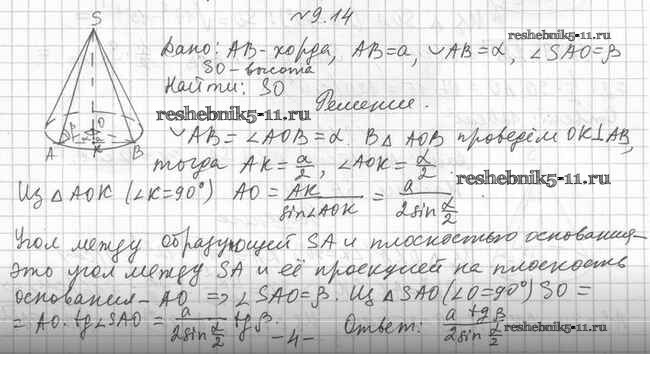 №9.14
reshebnik5-11.ru
S
Дано: AB - хорда, AB=a, ◡AB=α, ∠SAO=β
SO - высота
Найти: SO
reshebnik5-11.ru
Решение.
O
A K B
◡AB = ∠AOB = α. В △ AOB проведём OK⊥AB,
тогда AK = a/2, ∠AOK = α/2.
reshebnik5-11.ru
Из △ AOK (∠K=90°) AO = AK/sin∠AOK = a/(2sin α/2)
Угол между образующей SA и плоскостью основания -
это угол между SA и её проекцией на плоскость
основания - AO => ∠SAO=β. Из △ SAO (∠O=90°) SO =
= AO·tg∠SAO = a/(2sin α/2) tgβ. Ответ: a tgβ/(2sin α/2)
reshebnik5-11.ru
-4-